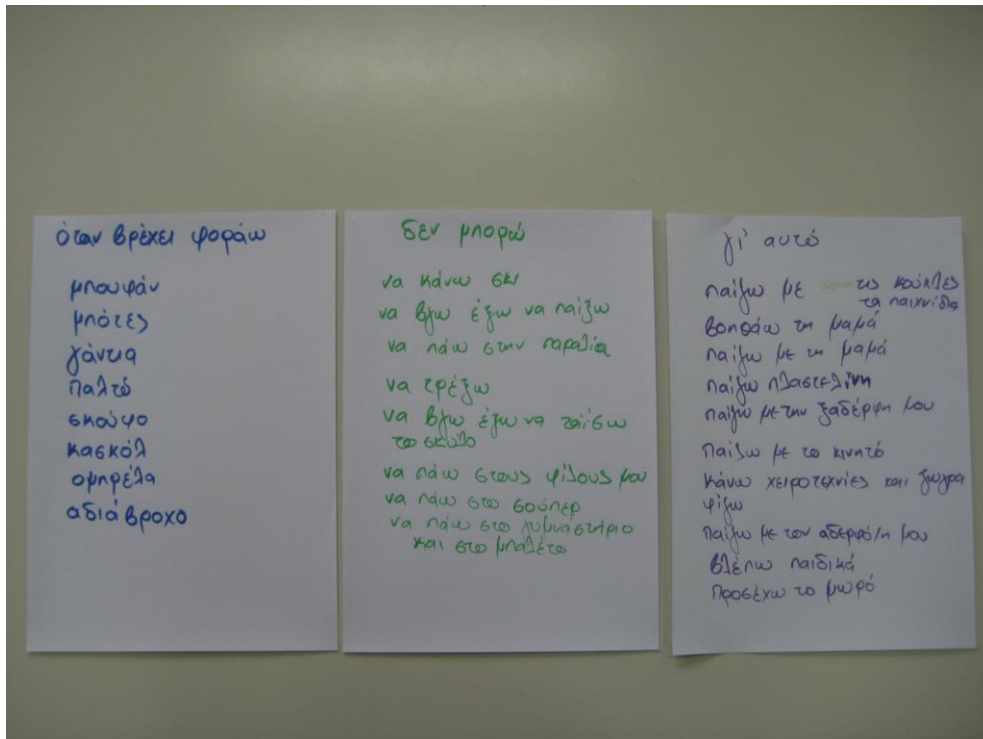 όταν βρέχει φοράω
μπουφάν
μπότες
γάντια
παλτό
σκούφο
κασκόλ
ομπρέλα
αδιάβροχο
δεν μπορώ
να κάνω σκι
να βγω έξω να παίξω
να πάω στην παραλία
να τρέξω
να βγω έξω να ταΐσω
το σκύλο
να πάω στους φίλους μου
να πάω στο σούπερ
να πάω στο γυμναστήριο
και στο μπαλέτο
γι' αυτό
παίζω με τις κούκλες
τα παιχνίδια
βοηθάω τη μαμά
παίζω με τη μαμά
παίζω πλαστελίνη
παίζω με την ξαδέρφη μου
παίζω με το κινητό
κάνω χειροτεχνίες και ζωγρα
φίζω
παίζω με τον αδερφό/η μου
βλέπω παιδικά
προσέχω το μωρό